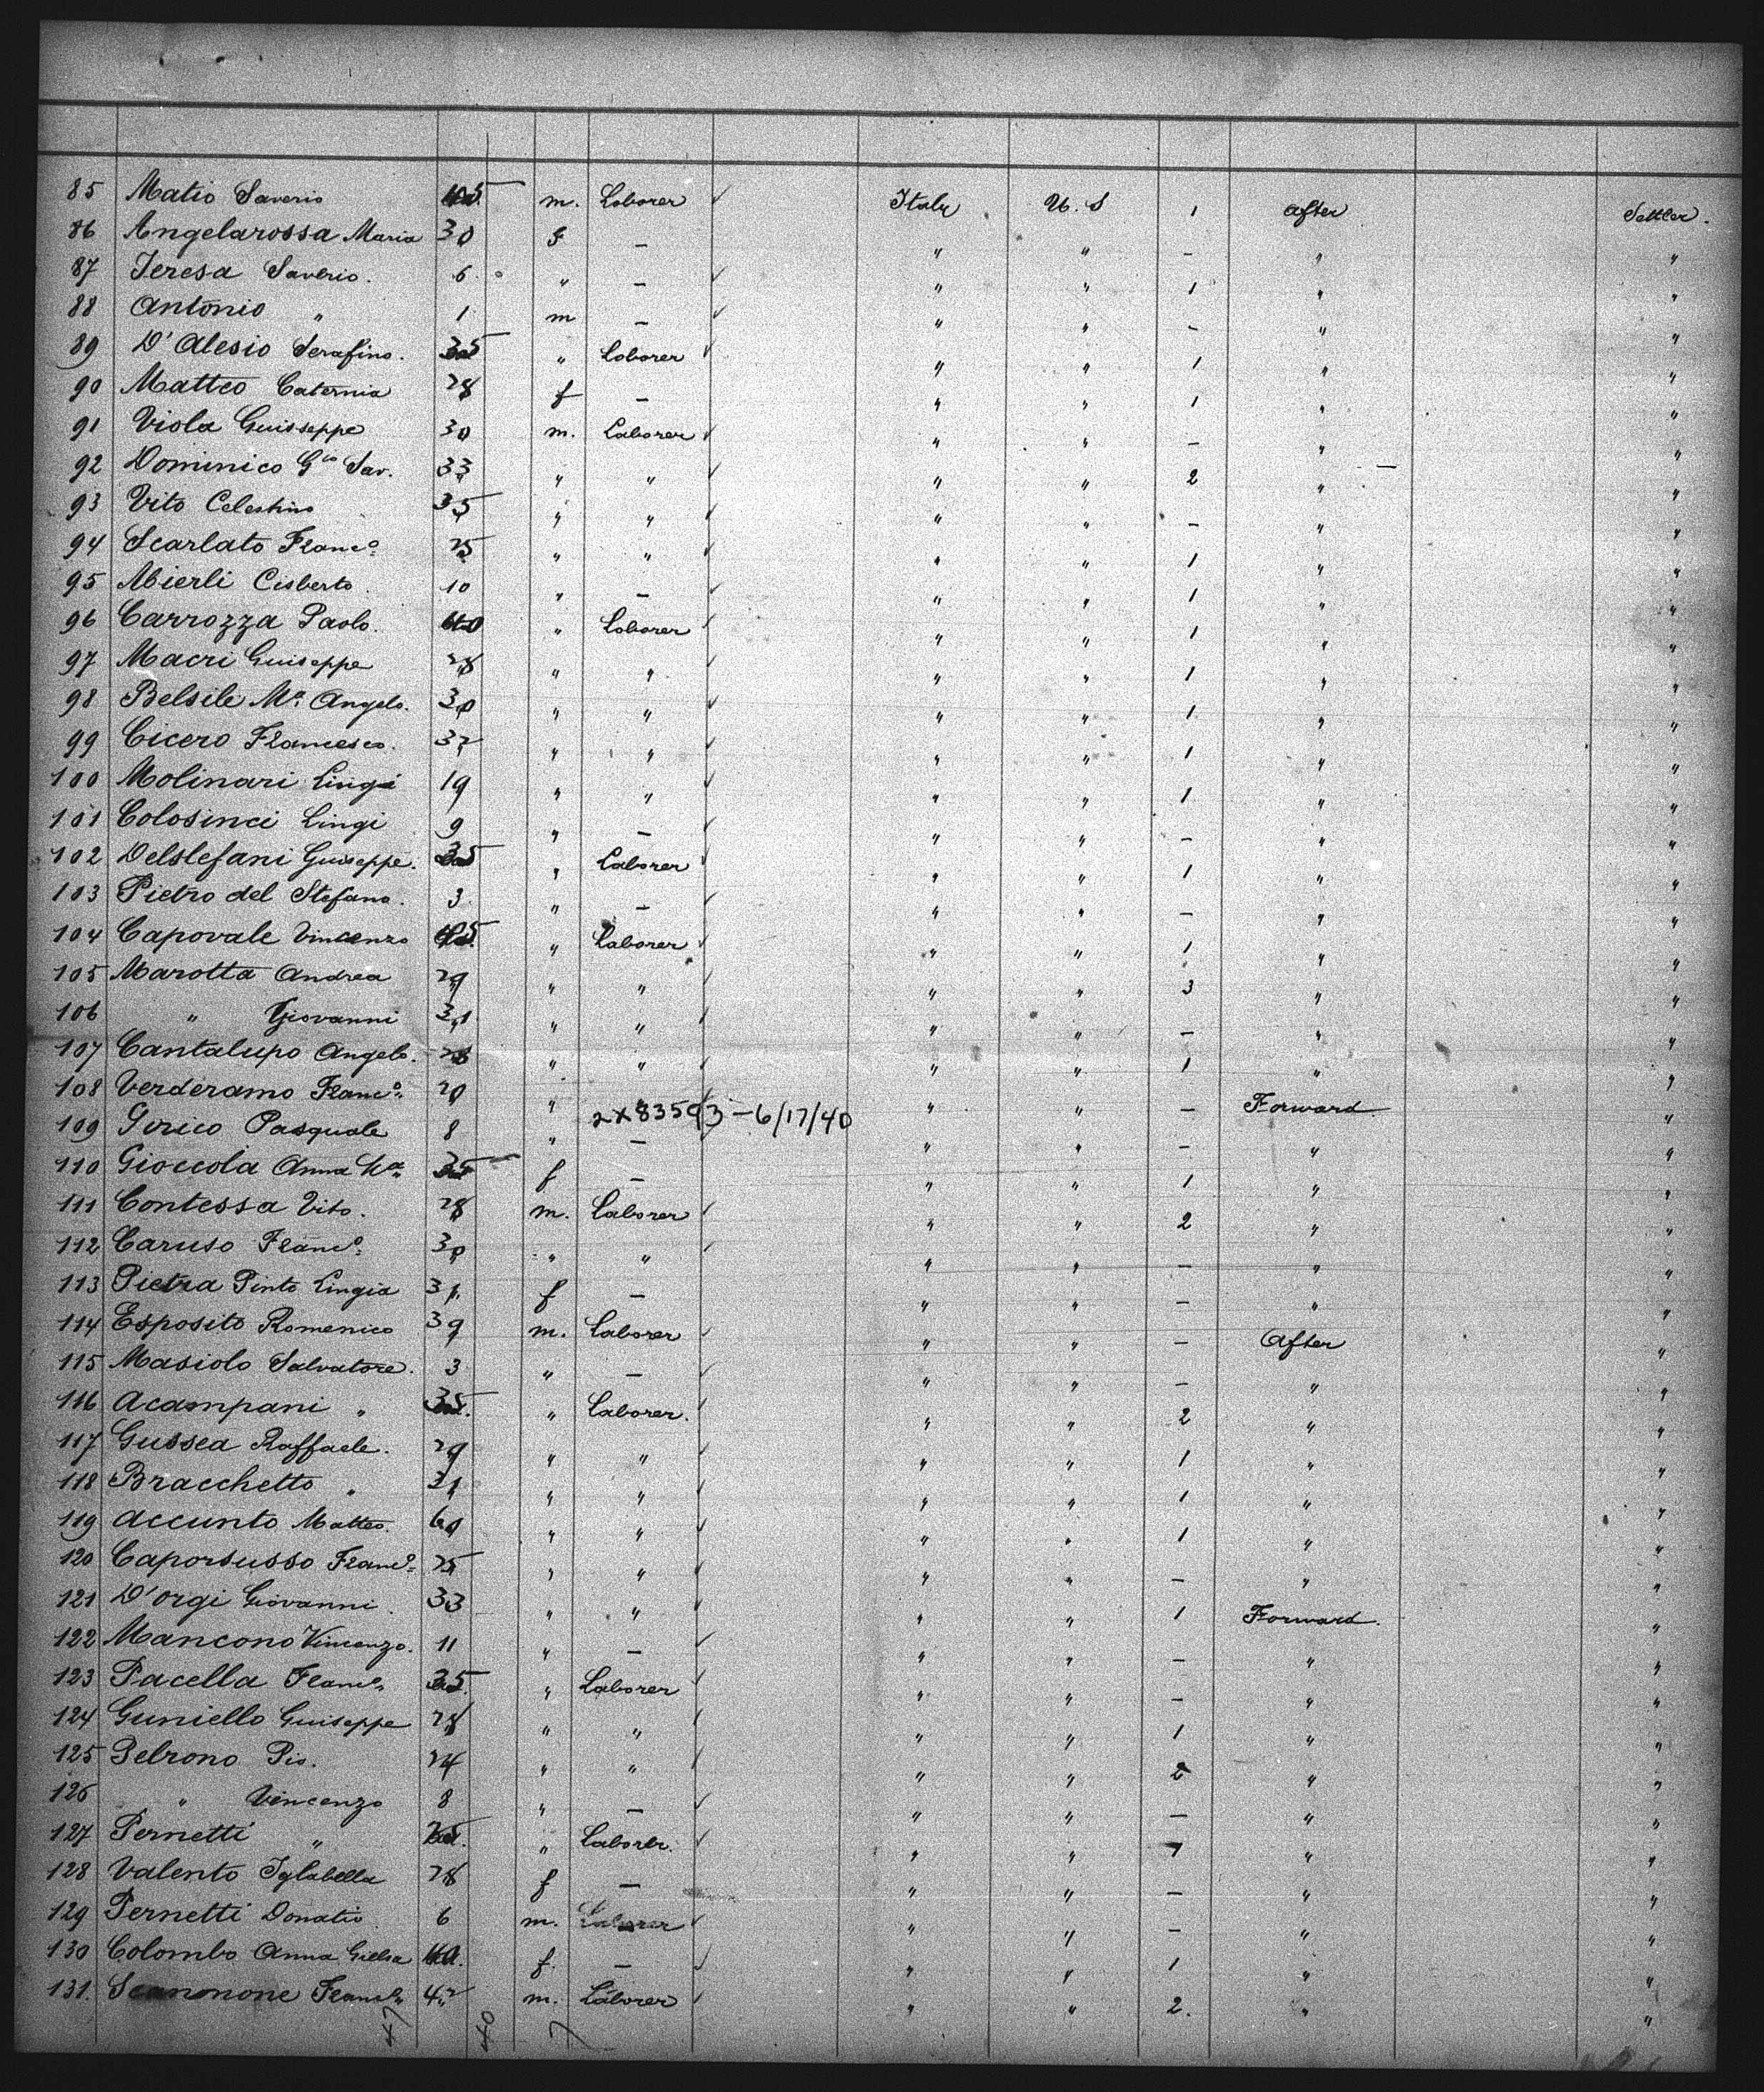 85 Matio Saverio 45 m. Laborer ✓ Italy U.S 1 After Settler.
86 Angelarossa Maria 30 f — " " — " "
87 Teresa Saverio. 6 " — ✓ " " 1 " "
88 Antonio " 1 m — ✓ " " — " "
89 D'Alesio Serafino. 35 " Laborer ✓ " " 1 " "
90 Matteo Caternia 28 f — " " 1 " "
91 Viola Guisseppe 30 m. Laborer ✓ " " — " "
92 Dominico Gio Sav. 33 " " ✓ " " 2 " "
93 Vito Celestino 35 " " ✓ " " — " "
94 Scarlato Franco 25 " " ✓ " " 1 " "
95 Mierli Cisberto 10 " — ✓ " " 1 " "
96 Carrozza Paolo. 40 " Laborer ✓ " " 1 " "
97 Macri Guiseppe 28 " " ✓ " " 1 " "
98 Belsile Ma Angelo. 30 " " ✓ " " 1 " "
99 Cicero Francesco. 32 " " ✓ " " 1 " "
100 Molinari Lingi 19 " " ✓ " " 1 " "
101 Colosinci Lingi 9 " — ✓ " " — " "
102 Delstefani Guiseppe. 35 " Laborer ✓ " " 1 " "
103 Pietro del Stefano. 3 " — ✓ " " — " "
104 Capovale Vincenzo 45 " Laborer ✓ " " 1 " "
105 Marotta Andrea 29 " " ✓ " " 3 " "
106 " Giovanni 31 " " ✓ " " — " "
107 Cantalupo Angelo. 28 " " ✓ " " 1 " "
108 Verderamo Franco 20 " " " — Forward "
2X83593 - 6/17/40
109 Girico Pasquale 8 " — " " — " "
110 Gioccola Anna Ma 35 f — " " 1 " "
111 Contessa Vito. 28 m. Laborer ✓ " " 2 " "
112 Caruso Franco 30 " " ✓ " " — " "
113 Pietra Pinto Lingia 31 f — " " — " "
114 Esposito Romenico 39 m. Laborer ✓ " " — After "
115 Masiolo Salvatore. 3 " — ✓ " " — " "
116 Acampani " 35 " Laborer. ✓ " " 2 " "
117 Gussea Raffaele. 29 " " ✓ " " 1 " "
118 Bracchetto " 31 " " ✓ " " 1 " "
119 Accunto Matteo. 60 " " ✓ " " 1 " "
120 Caporsusso Franco 25 " " ✓ " " — " "
121 D'Orgi Giovanni. 33 " " ✓ " " 1 Forward. "
122 Mancono Vincenzo. 11 " — ✓ " " — " "
123 Pacella Franco 35 " Laborer ✓ " " — " "
124 Guniello Guiseppe 28 " " ✓ " " 1 " "
125 Pelrono Pio. 24 " " ✓ " " 2 " "
126 " Vincenzo 8 " — ✓ " " — " "
127 Pernetti " " Laborer. ✓ " " 1 " "
128 Valento Iglabella 28 f — " " — " "
129 Pernetti Donatio 6 m. Laborer ✓ " " — " "
130 Colombo Anna 40. f. — ✓ " " 1 " "
131. Scannone Franco 42 m. Laborer ✓ " " 2. " "
47 40 7